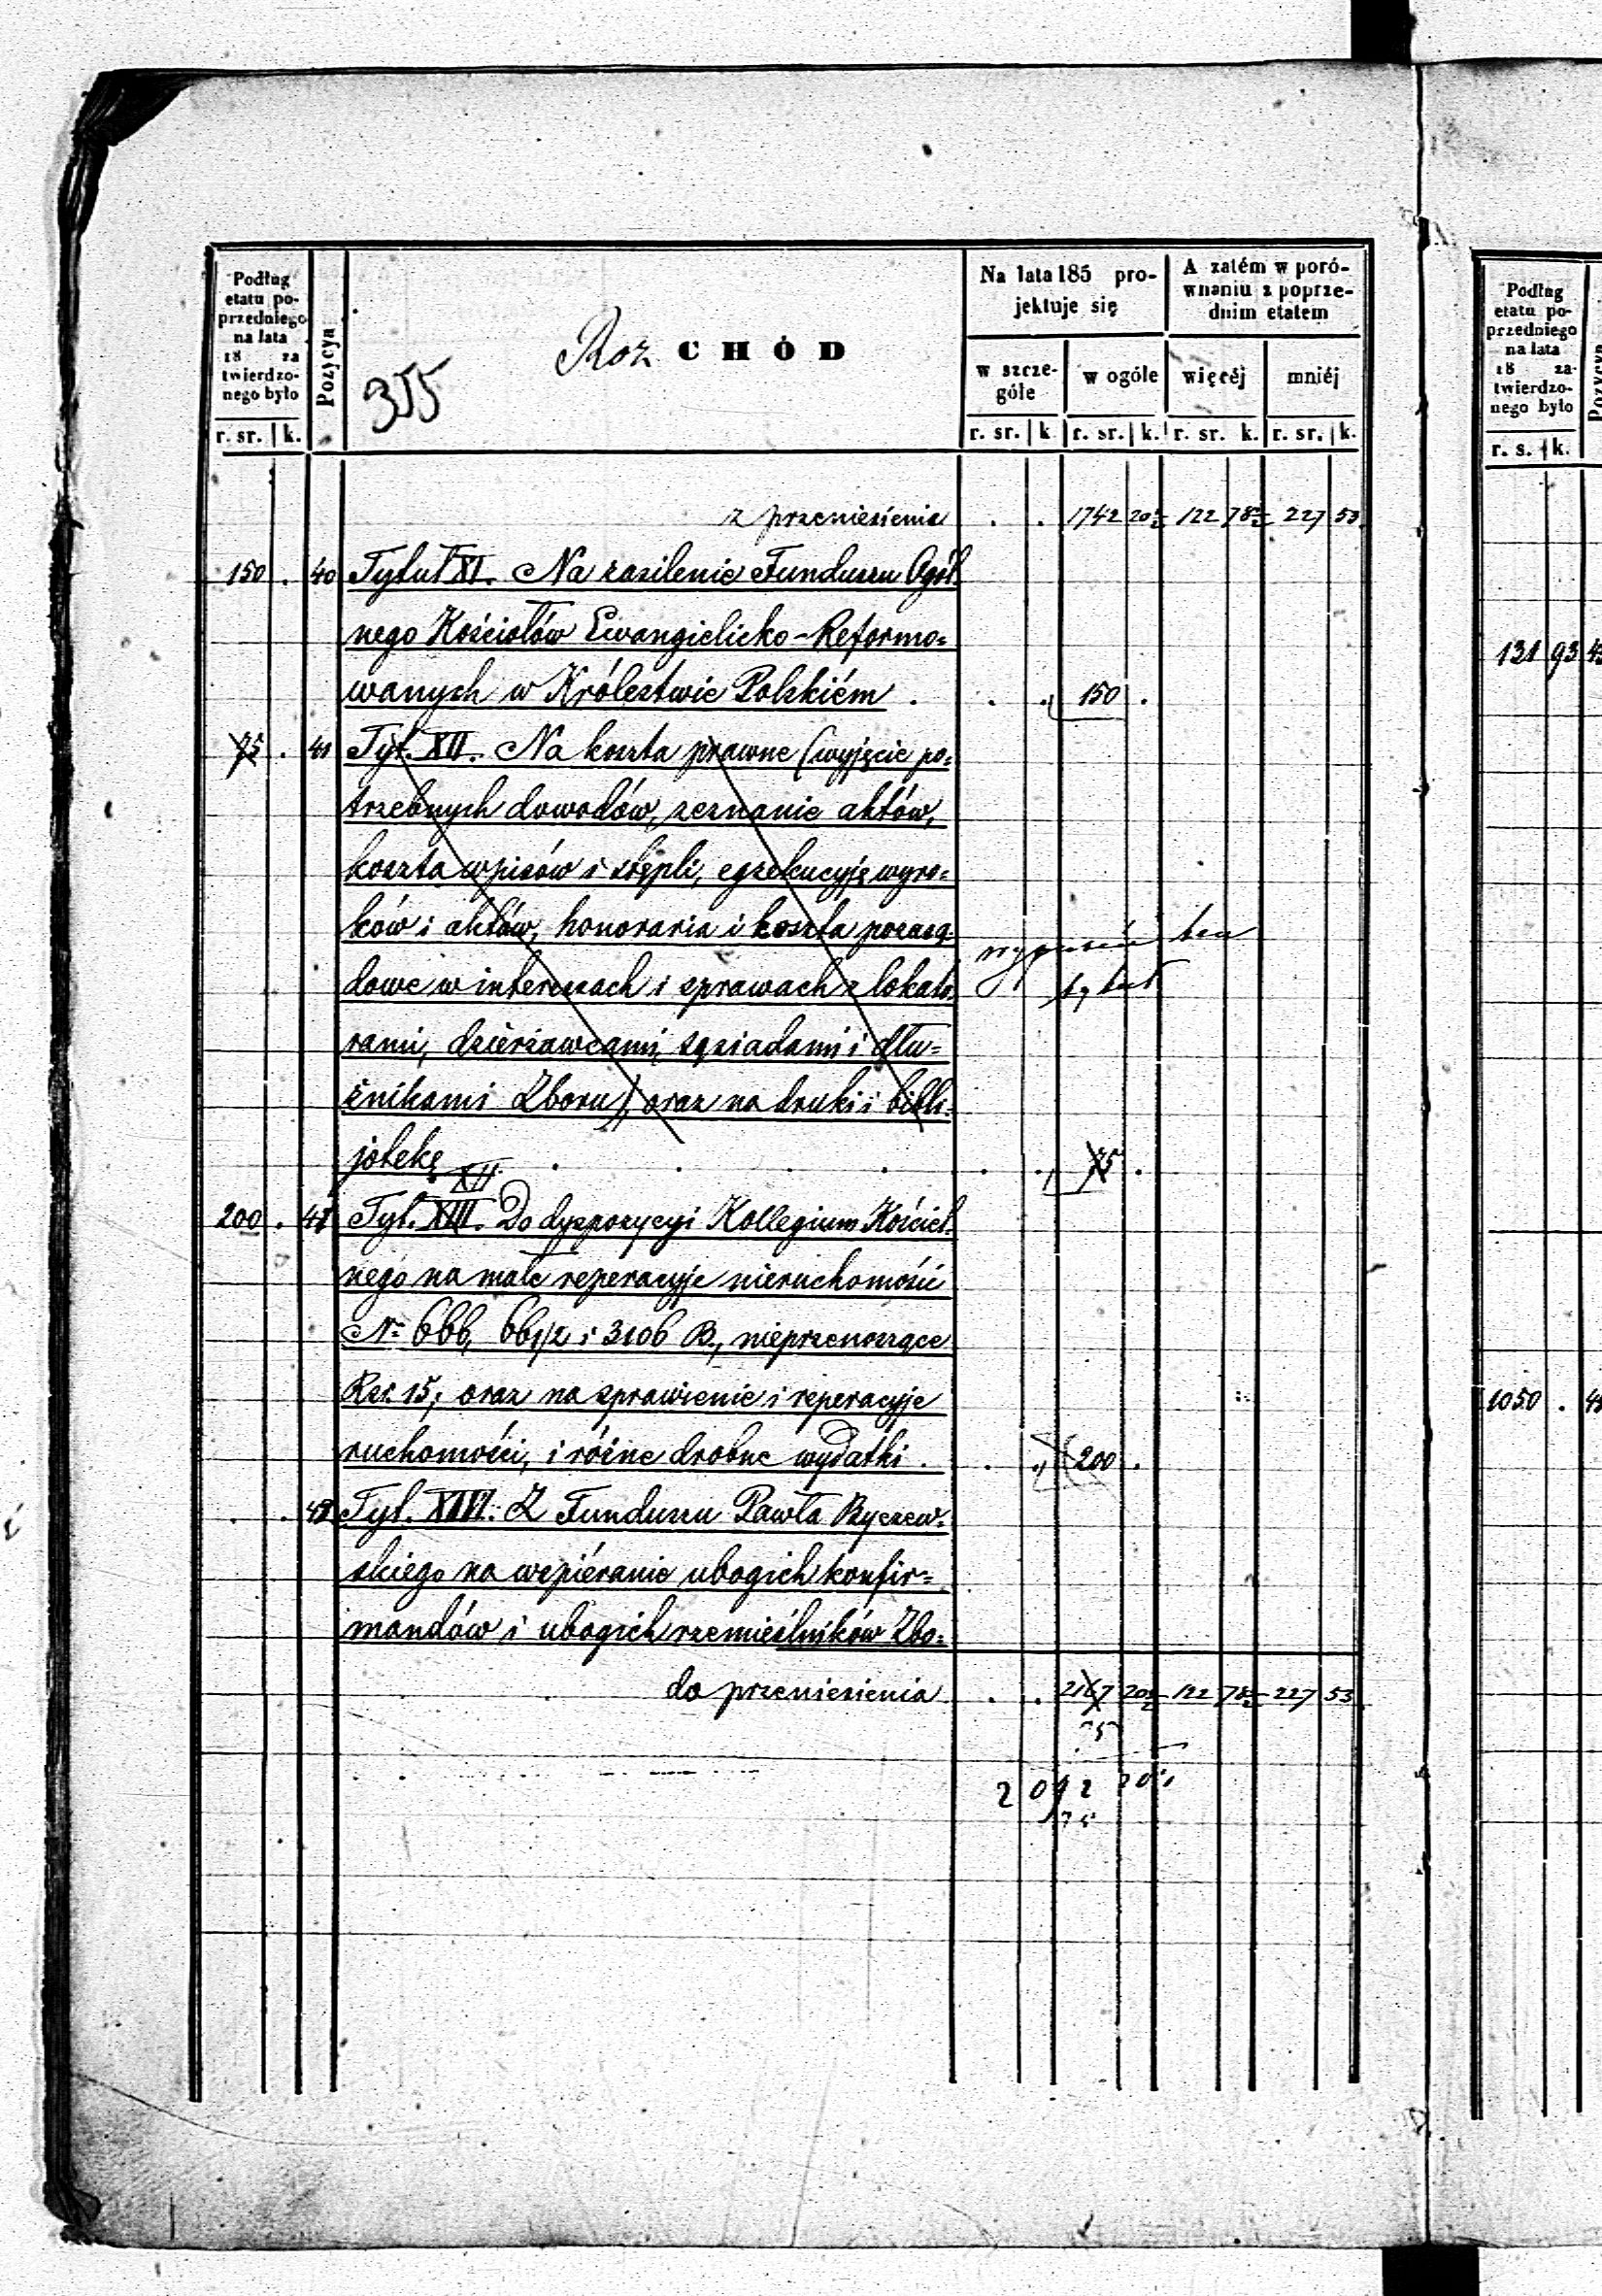 Podług etatu poprzedniego na lata 18 za twierdzonego było
Pozycya
Roz CHÓD
355
Na lata 185 projektuje się
A zatém w porównaniu z poprzednim etatem
w szczególe
w ogóle
więcéj
mniéj
r. sr. k. r. sr. k. r. sr. k. r. sr. k. r. sr. k.
z przeniesienia . . 1742 20½ 122 78½ 227 53
150 . 40 Tytuł XI. Na zasilenie Funduszu Ogól-
nego Kościołów Ewangielicko-Reformo=
wanych w Królestwie Polskiém . . . 150 .
75 . 41 Tyt. XII. Na koszta prawne (wyjęcie po=
trzebnych dowodów, zeznanie aktów,
koszta wpisów i stępli, egzekucyję wyro=
ków i aktów, honoraria i koszta pozasą-
dowe w interesach i sprawach z lokato-
rami, dzierżawcami, sąsiadami i dłu=
żnikami Zboru), oraz na druki i bibli-
jotekę . . . . . . 75 .
wypuścić ten
tytuł
XII.
200 . 41 Tyt. XIII. Do dyspozycyi Kollegium Kościel-
nego na małe reperacyje nieruchomości
No 666, 661/2 i 3106 B., nieprzenoszące
Rsr. 15; oraz na sprawienie i reperacyje
ruchomości, i różne drobne wydatki . . . 200 .
. . 42 Tyt. XIII. Z Funduszu Pawła Ryczew-
skiego na wspiéranie ubogich konfir=
mandów i ubogich rzemieślników Zbo=
do przeniesienia . . 2167 20½ 122 78½ 227 53
75
2092 20½
75
Podług etatu poprzedniego na lata 18 za- twierdzonego było
Pozycya
r. s. k.
131 93
1050 .